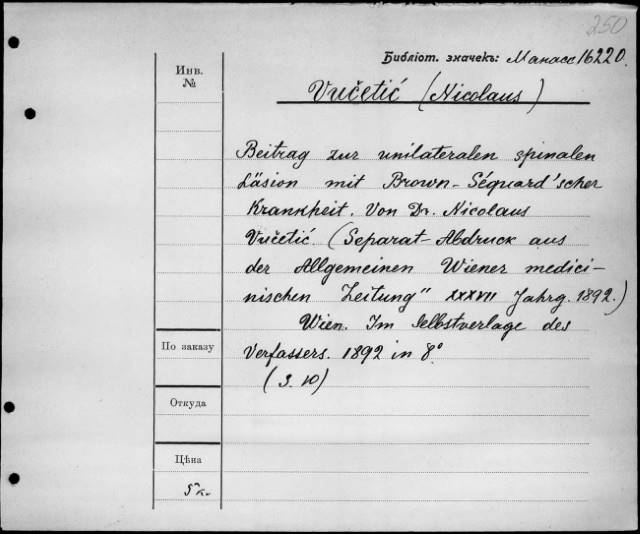 250
Библіот. значекъ: Манасс 16220.
Инв. №
Vučetić (Nicolaus)
Beitrag zur unilateralen spinalen
Läsion mit Brown-Séquard'scher
Krankheit. Von Dr. Nicolaus
Vučetić. (Separat-Abdruck aus
der Allgemeinen Wiener medici-
nischen Zeitung" XXXVII Jahrg. 1892.)
Wien. Im Selbstverlage des
Verfassers. 1892 in 8º
(S. 10)
По заказу
Откуда
Цѣна
5 к.